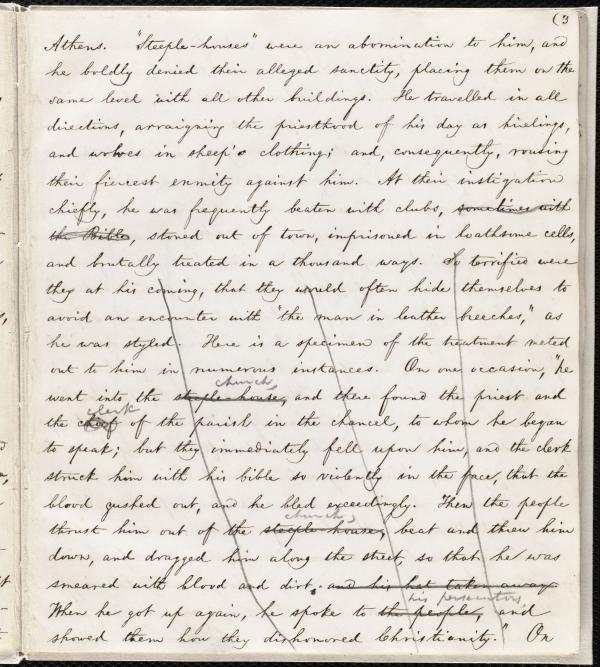 (3
Athens. "Steeple-houses" were an abomination to him, and
he boldly denied their alleged sanctity, placing them on the
same level with all other buildings. He travelled in all
directions, arraigning the priesthood of his day as hirelings,
and wolves in sheep's clothing; and, consequently, rousing
their fiercest enmity against him. At their instigation
chiefly, he was frequently beaten with clubs, sometimes with
the Bible, stoned out of town, imprisoned in loathsome cells,
and brutally treated in a thousand ways. So terrified were
they at his coming, that they would often hide themselves to
avoid an encounter with "the man in leather breeches," as
he was styled. Here is a specimen of the treatment meted
out to him in numerous instances. On one occasion, "he
church,
went into the steeple-house, and there found the priest and
clerk
the of the parish in the chancel, to whom he began
to speak; but they immediately fell upon him, and the clerk
struck him with his bible so violently in the face, that the
blood gushed out, and he bled exceedingly. Then the people
church,
thrust him out of the steeple-house, beat and threw him
down, and dragged him along the street, so that he was
smeared with blood and dirt. and his hat taken away.
his persecutors
When he got up again, he spoke to the people, and
showed them how they dishonored Christianity." On